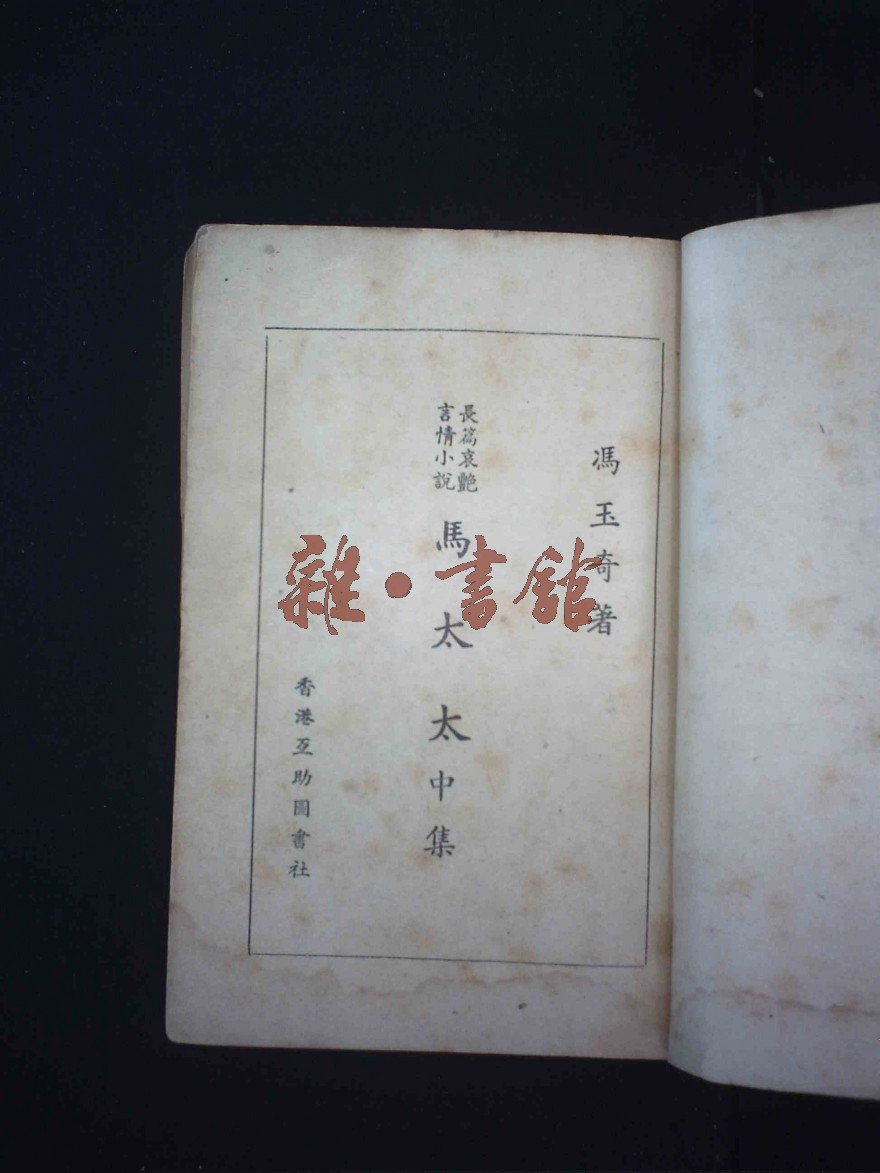 馮玉奇著
長篇哀艷
言情小說
馬太太中集
香港互助圖書社
雜·書館